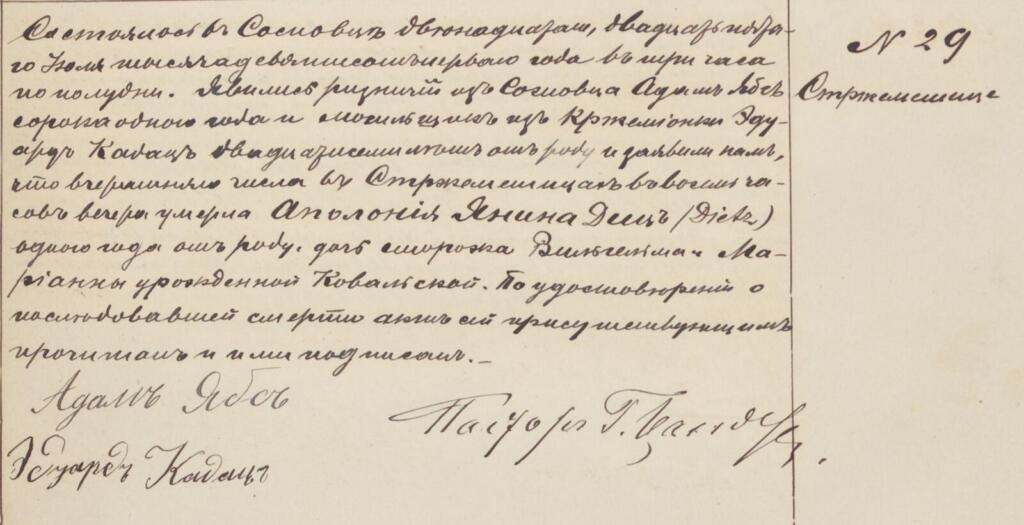 Состоялось въ Сосновцѣ двѣнадцатаго, двадцать пята-
го Іюля тысяча девятисотъ перваго года въ три часа
по полудни. Явились ризничій изъ Сосновца Адамъ Ябсъ
сорока одного года и могильщикъ изъ Кржеміонки Эду-
ардъ Кадацъ двадцати семи лѣтъ отъ роду и заявили намъ,
что вчерашняго числа въ Стржемешицахъ въ восемь ча-
совъ вечера умерла Аполонія Янина Децъ /Dietz/
одного года отъ роду, дочь сторожа Вильгельма и Ма-
ріанны урожденной Ковальской. По удостовѣреніи о
послѣдовавшей смерти актъ сей присутствующимъ
прочитанъ и ими подписанъ.
Адамъ Ябсъ
Пасторъ Г.
Эдуардъ Кадацъ
N 29
Стржемешице